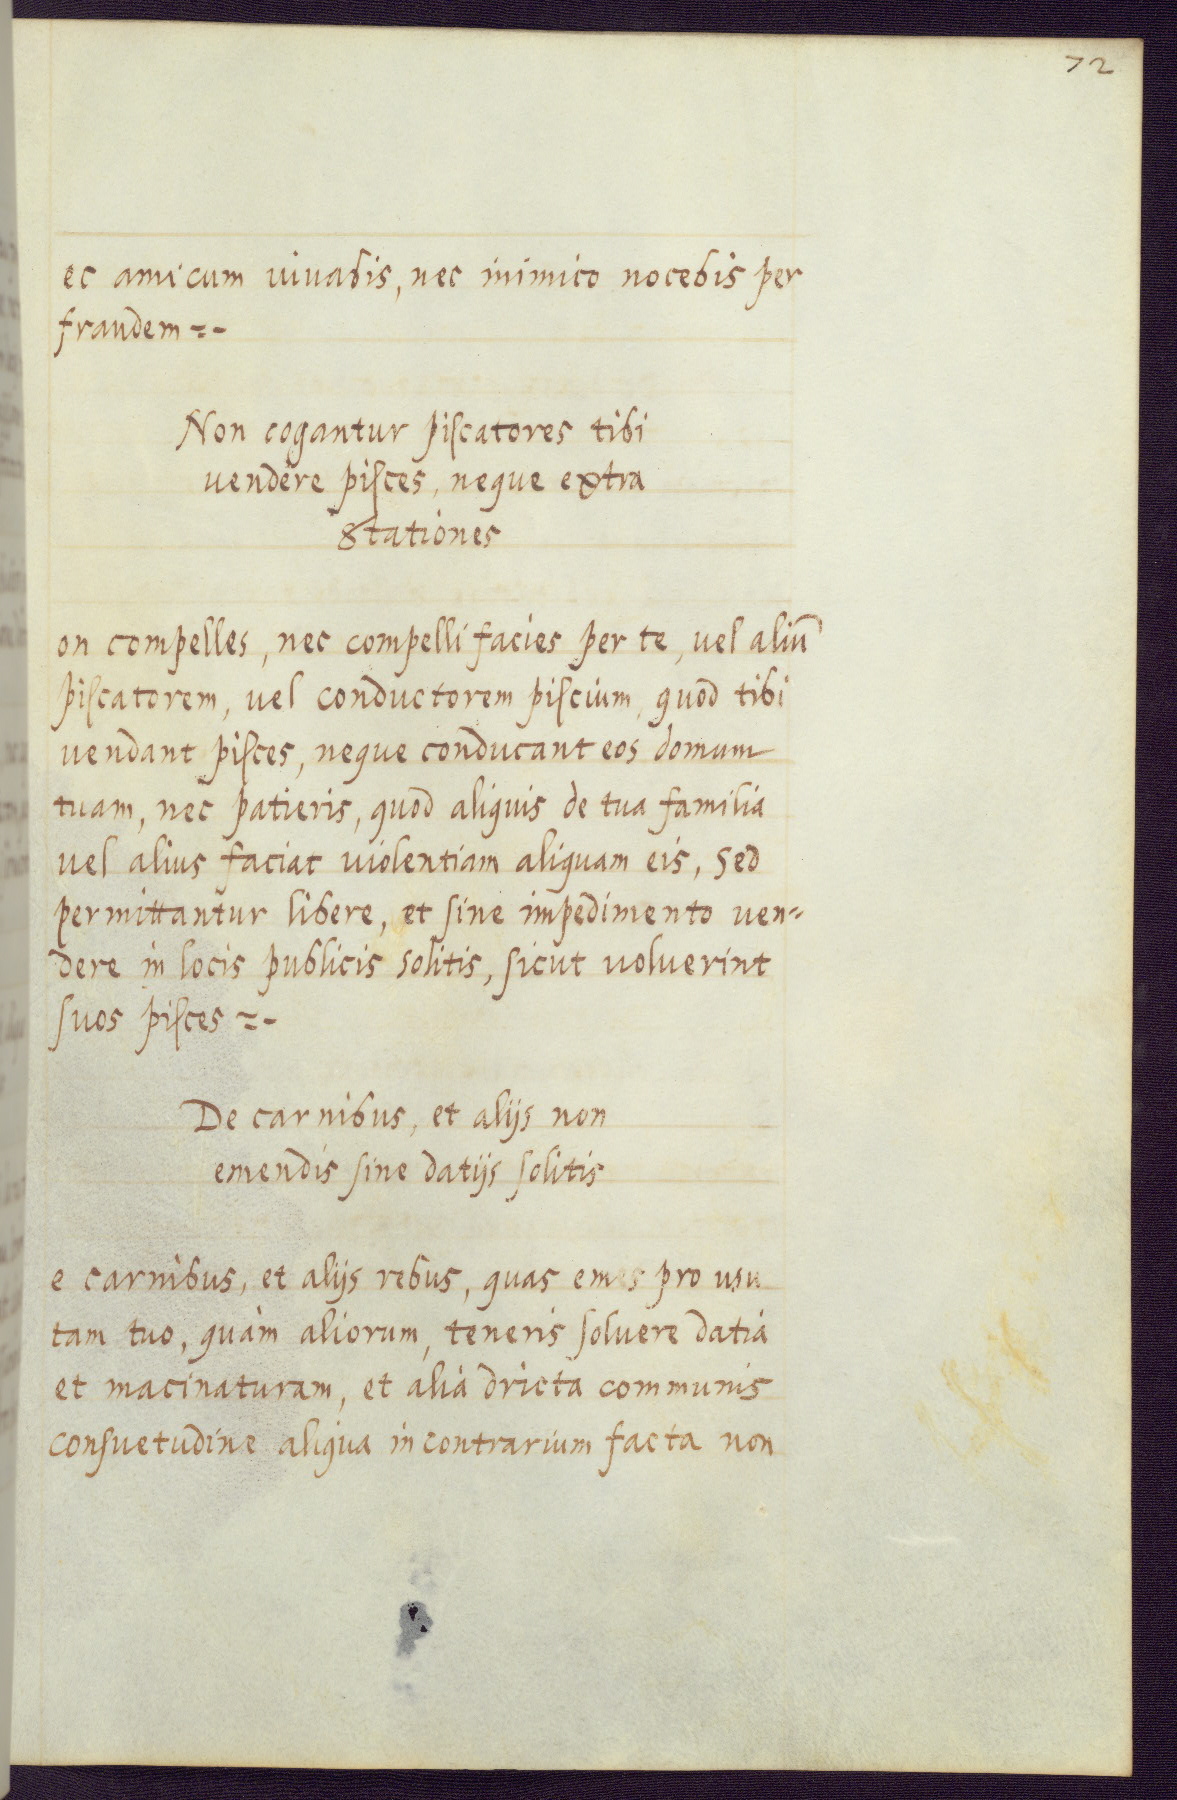 72
ec amicum iuvabis, nec inimico nocebis per
fraudem =-
Non cogantur piſcatores tibi
vendere piſces, neque extra
Stationes
on compelles, nec compelli facies per te, vel aliũ
piſcatorem, vel conductorem piſcium, quod tibi
vendant piſces, neque conducant eos domum
tuam, nec patieris, quod aliquis de tua familia
vel alius faciat violentiam aliquam eis, sed
permittantur libere, et ſine impedimento ven=
dere in locis publicis solitis, ſicut voluerint
ſuos piſces =-
De carnibus, et alijs non
emendis ſine datijs ſolitis
e carnibus, et alijs rebus, quas emes pro usu
tam tuo, quàm aliorum, teneris ſolvere datia
et macinaturam, et alia dricta communis
conſuetudine aliqua in contrarium facta non